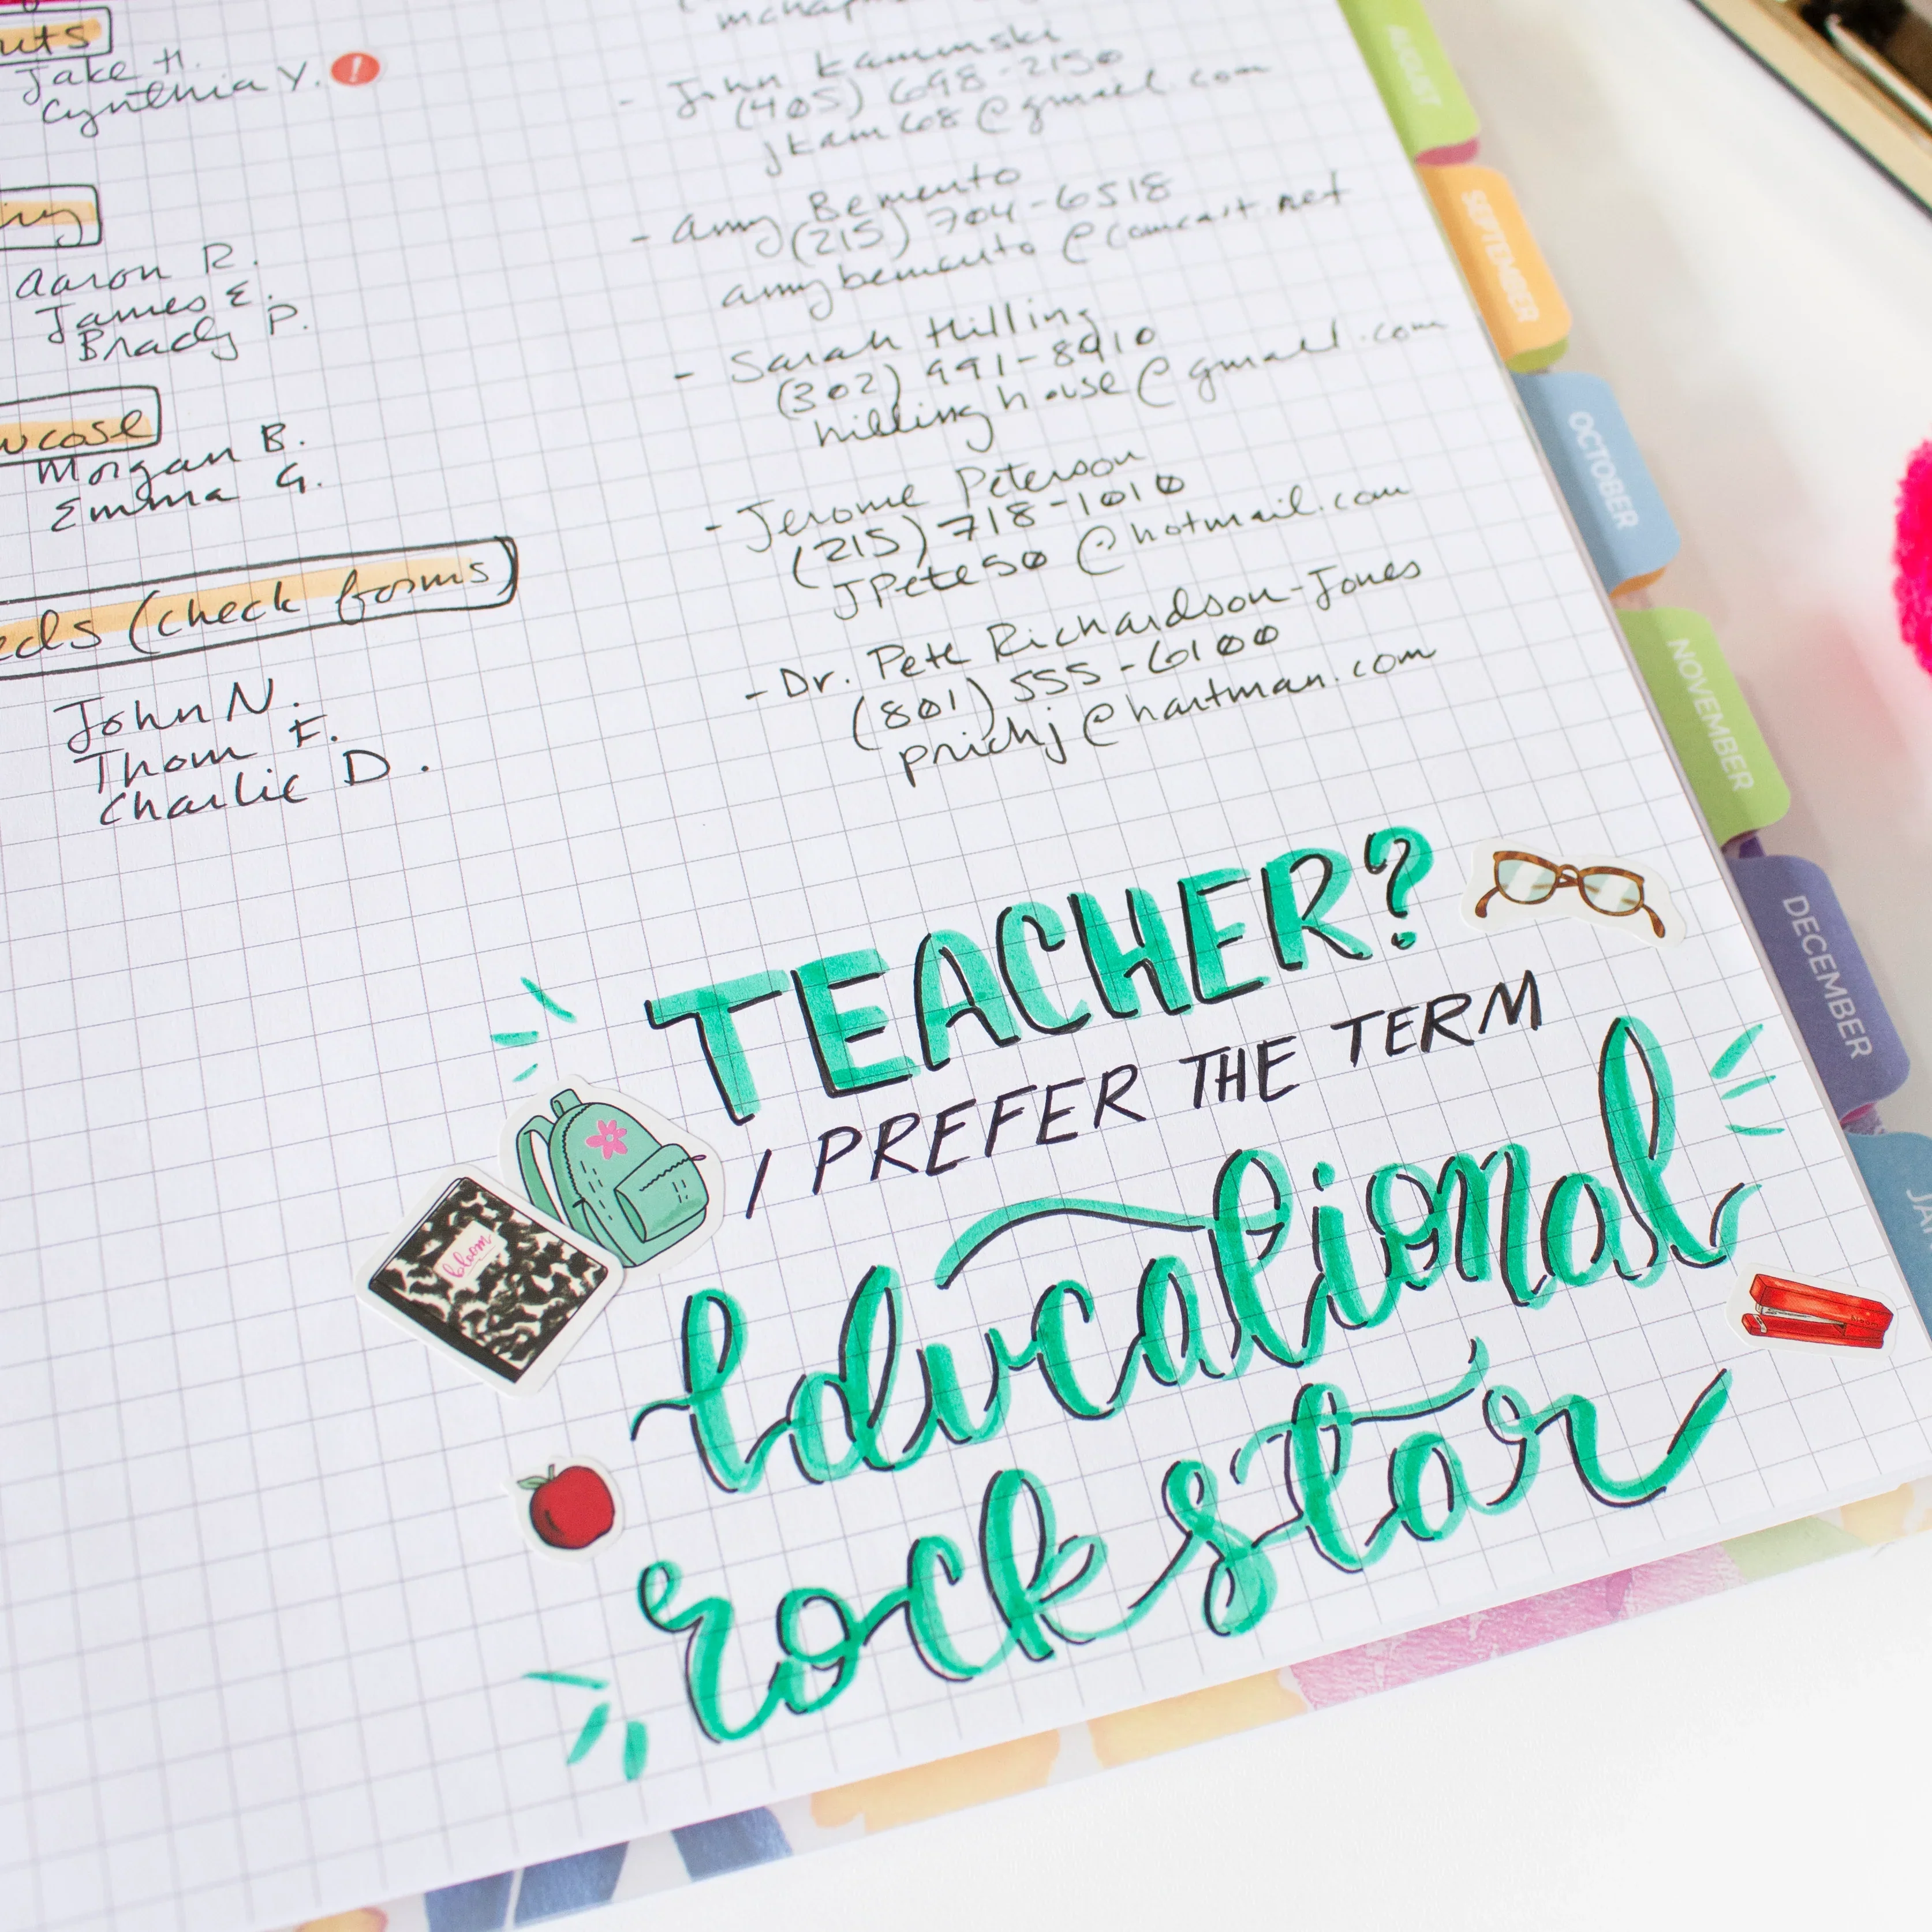 Jake H.
Cynthia Y.
!
Aaron R.
James E.
Brady P.
Morgan B.
Emma G.
(check forms)
John N.
Thom F.
Charlie D.
- John Kaminski
(405) 698-2150
jkam68@gmail.com
- Amy Bemento
(215) 704-6518
amybemento@comcast.net
- Sarah Hilling
(302) 991-8910
hillinghouse@gmail.com
- Jerome Peterson
(215) 718-1010
JPete50@hotmail.com
- Dr. Pete Richardson-Jones
(801) 555-6100
prichj@hartman.com
TEACHER?
I PREFER THE TERM
Educational
rockstar
bloom
AUGUST
SEPTEMBER
OCTOBER
NOVEMBER
DECEMBER